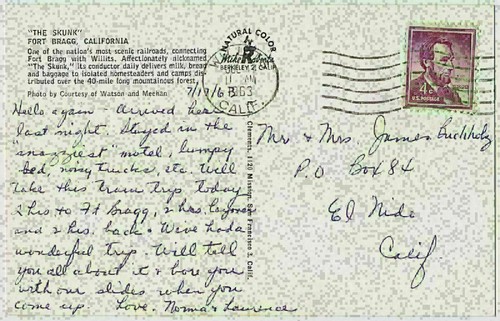 "THE SKUNK"
FORT BRAGG, CALIFORNIA
One of the nation's most scenic railroads, connecting
Fort Bragg with Willits. Affectionately nicknamed
"The Skunk," its conductor daily delivers milk, bread
and baggage to isolated homesteaders and camps dis-
tributed over the 40-mile long mountainous forest.
Photo by Courtesy of Watson and Meehan
7/19/63
Hello again Arrived here
last night. Stayed in the
"snazziest" motel, lumpy
bed, noisy trucks, etc. Will
take this train trip today
2 hrs to Ft Bragg, 2 hrs layover
and 2 hrs. back. We've had a
wonderful trip. Will tell
you all about it & bore you
with our slides when you
come up. Love. Norma & Laurence
NATURAL COLOR
Mike Roberts
BERKELEY 2, CALIF
1963
CALIF.
Clements, 112 Mission, San Francisco 5, Calif.
4¢
U.S. POSTAGE
Mr & Mrs James Buchholz
P.O Box 84
El Nido
Calif.